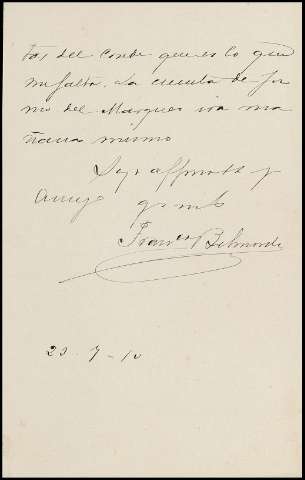 tos del Conde que es lo que
me falta. La cuenta de
del Marques irá ma
ñana mismo
Suyo affmo y
Amigo
Franco Belmonte